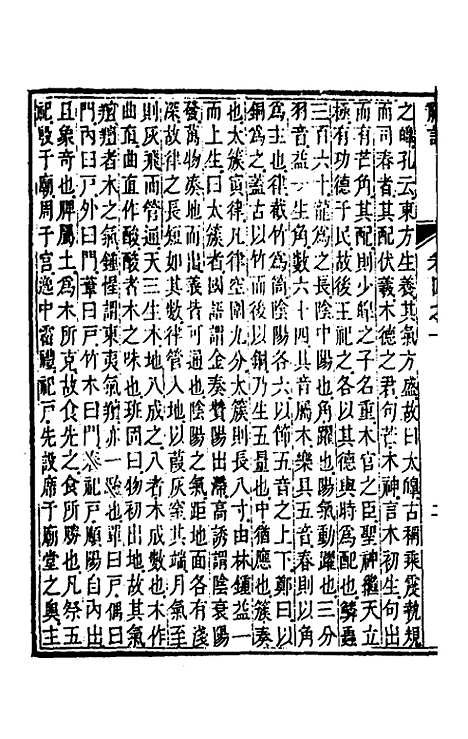 之皥孔云東方生養其氣方盛故曰太皥古稱乘震執規
而司春者其配伏羲木德之君句芒木神言木初生句出
而有芒角其配則少皥之子名重木官之臣聖神繼天立
極有功德于民故後王祀之各以其德與時為配也鱗蟲
三百六十龍為之長陰中陽也角躍也陽氣動躍也三分
羽音益一生角數六十四具音屬木樂具五音春則以角
為主也律截竹為筒陰陽各六以節五音之上下鄭曰以
銅為之蓋古以竹而後以銅乃生五量也中猶應也簇奏
也太簇寅律凡律空圍九分太簇則長八寸由林鍾益一
而上生曰太簇者國語謂金奏贊陽出滯高誘謂陰衰陽
發萬物湊地而出義皆可通也陰陽之氣距地面各有淺
深故律之長短如其數律管入地以葭灰窒其端月氣至
則灰飛而管通天三生木地八成之八者木成數也木作
曲直曲直作酸酸者木之味也班固曰物初出地故其氣
羶羶者木之氣鍾惺謂東夷氣羶亦一證也單曰戶偶曰
門內曰戶外曰門葦曰戶竹木曰門 祀戶順陽自內出
且象奇也脾屬土為木所克故食先之食所勝也凡祭五
祀殷于廟周于宮逸中霤禮祀戶先設席于廟堂之奧主